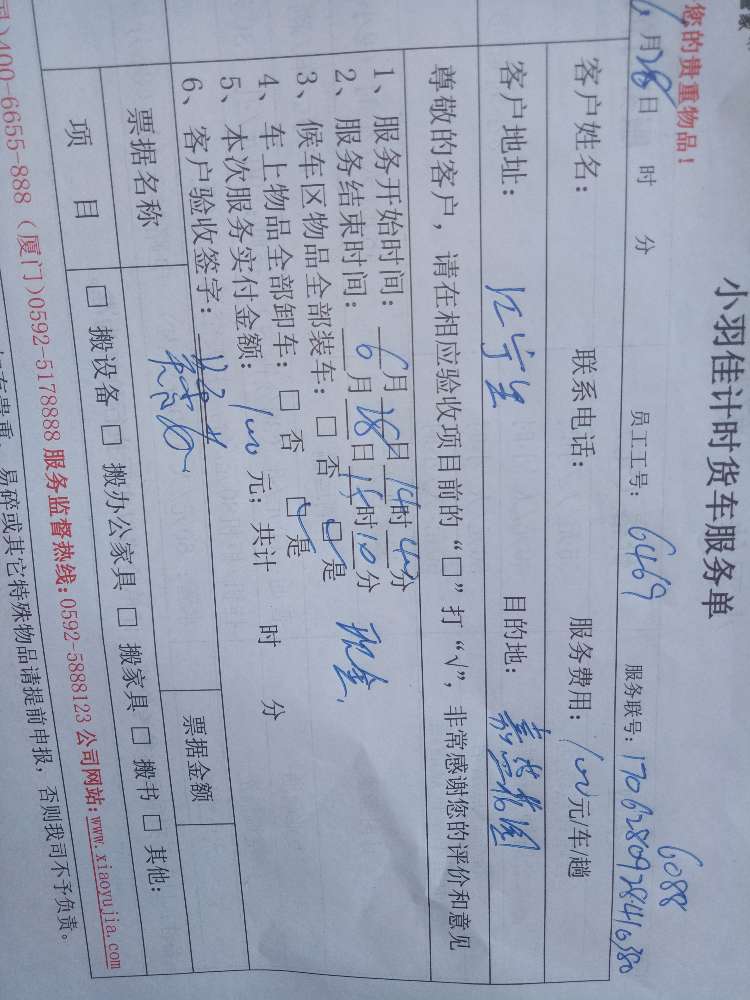 您的贵重物品！
小羽佳计时货车服务单
6月28日 时 分 员工工号：6469 服务联号：17062809284
6088
客户姓名： 联系电话： 服务费用：100元/车/趟
客户地址： 目的地：
尊敬的客户，请在相应验收项目前的“□”打“√”，非常感谢您的评价和意见
1、服务开始时间：6月28日14时40分
2、服务结束时间：6月28日15时10分 现金
3、候车区物品全部装车：□ 否 ☑ 是
4、车上物品全部卸车：□ 否 ☑ 是
5、本次服务实付金额：100元；共计 时 分
6、客户验收签字：
票据名称 票据金额
项 目 □ 搬设备 □ 搬办公家具 □ 搬家具 □ 搬书 □ 其他：
)400-6655-888（厦门)0592-5178888 服务监督热线：0592-5888123 公司网站：www.xiaoyujia.com
易碎或其它特殊物品请提前申报，否则我司不予负责。